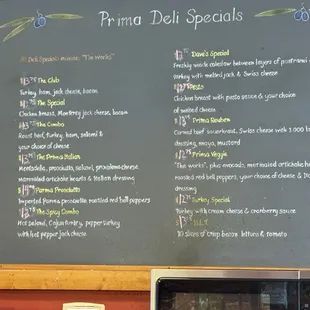 Prima Deli Specials
All Deli Specials include, "The Works"
The Club
Turkey, ham, jack cheese, bacon
The Special
Chicken breast, Monterey jack cheese, bacon
The Combo
Roast beef, turkey, ham, salami &
your choice of cheese
The Prima Italian
Mortadella, prosciutto, salami, provolone cheese
marinated artichoke hearts & Italian dressing
Parma Prosciutto
Imported Parma prosciutto, roasted red bell peppers
The Spicy Combo
Hot salami, Cajun turkey, pepper turkey
with hot pepper jack cheese
Dave's Special
Freshly made coleslaw between layers of pastrami
turkey with melted jack & Swiss cheese
Pesto
Chicken breast with pesto sauce & your choice
of melted cheese
Prima Reuben
Corned beef, sauerkraut, Swiss cheese with 1000
dressing, mayo, mustard
Prima's Veggie
"The works", plus avocado, marinated artichoke
roasted red bell peppers, your choice of cheese &
dressing
Turkey Special
Turkey with cream cheese & cranberry sauce
B.L.T.
10 slices of crisp bacon, lettuce & tomato